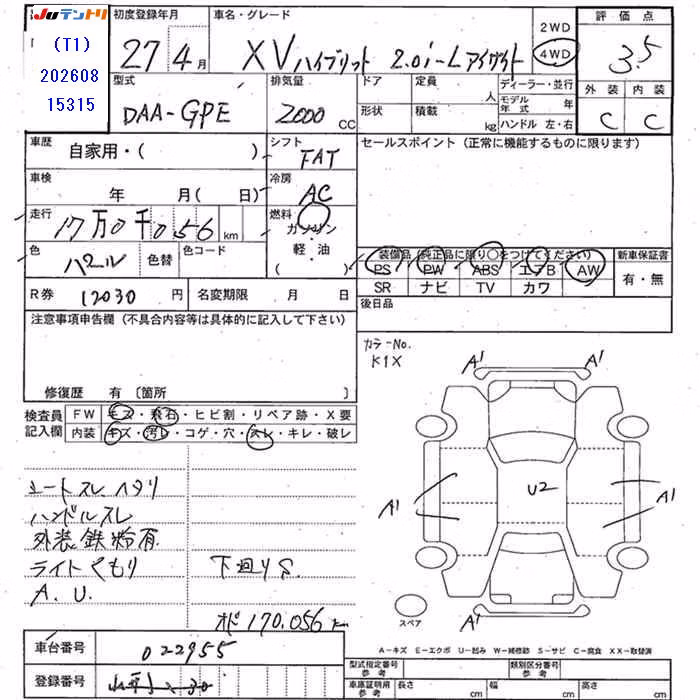 Juテントリ
(T1)
202608
15315
初度登録年月
27年4月
車名・グレード
XVハイブリット 2.0i-Lアイサイト
2WD
4WD
評価点
3.5
外装 内装
C C
型式
DAA-GPE
排気量
2000 CC
ドア
形状
定員
人
積載
kg
ディーラー・並行
モデル年式 年
ハンドル 左・右
車歴
自家用・( )
シフト
FAT
セールスポイント (正常に機能するものに限ります)
車検
年 月( 日)
冷房
AC
走行
17万0千056km
燃料
ガソリン・軽油
( )
色
パール
色替
色コード
装備品 (純正品に限り○をつけてください)
新車保証書
PS PW ABS エアB AW
SR ナビ TV カワ
有・無
R券 12030円
名変期限 月 日
後日品
注意事項申告欄 (不具合内容等は具体的に記入して下さい)
修復歴 有 〔箇所 〕
カラーNo.
K1X
検査員記入欄
FW キズ・飛石・ヒビ割・リペア跡・X要
内装 キズ・汚レ・コゲ・穴・スレ・キレ・破レ
シートスレ ハタリ
ハンドルスレ
外装鉄粉有
ライトくもり
A.U.
下廻りS
オド170,056km
A1 A1
A1 U2 A1
A1
スペア
A-キズ E-エクボ U-凹み W-補修跡 S-サビ C-腐食 XX-取替済
車台番号 022955
登録番号
型式指定番号 参考
類別区分番号 参考
車庫証明用 参考
長さ cm
幅 cm
高さ cm